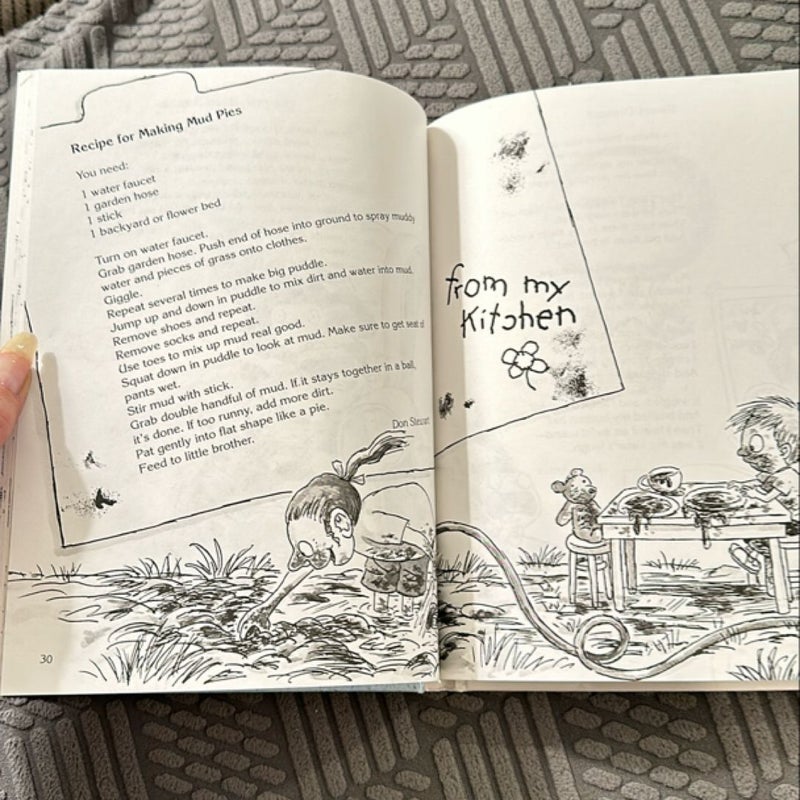 Recipe for Making Mud Pies
You need:
1 water faucet
1 garden hose
1 stick
1 backyard or flower bed
Turn on water faucet.
Grab garden hose. Push end of hose into ground to spray muddy
water and pieces of grass onto clothes.
Giggle.
Repeat several times to make big puddle.
Jump up and down in puddle to mix dirt and water into mud.
Remove shoes and repeat.
Remove socks and repeat.
Use toes to mix up mud real good.
Squat down in puddle to look at mud. Make sure to get seat of
pants wet.
Stir mud with stick.
Grab double handful of mud. If it stays together in a ball,
it's done. If too runny, add more dirt.
Pat gently into flat shape like a pie.
Feed to little brother.
Don
30
from my
Kitchen